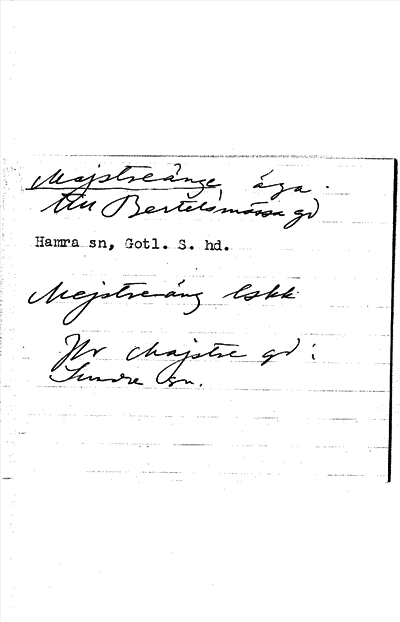 Majstreänge, äga.
till Bertels i mässa gd
Hamra sn, Gotl. S. hd.
Mejstreäng lskk
Jfr Majstre gd i
Sundre sn.